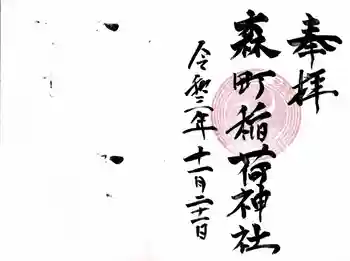 奉拝
森町稲荷神社
令和二年十一月二十二日